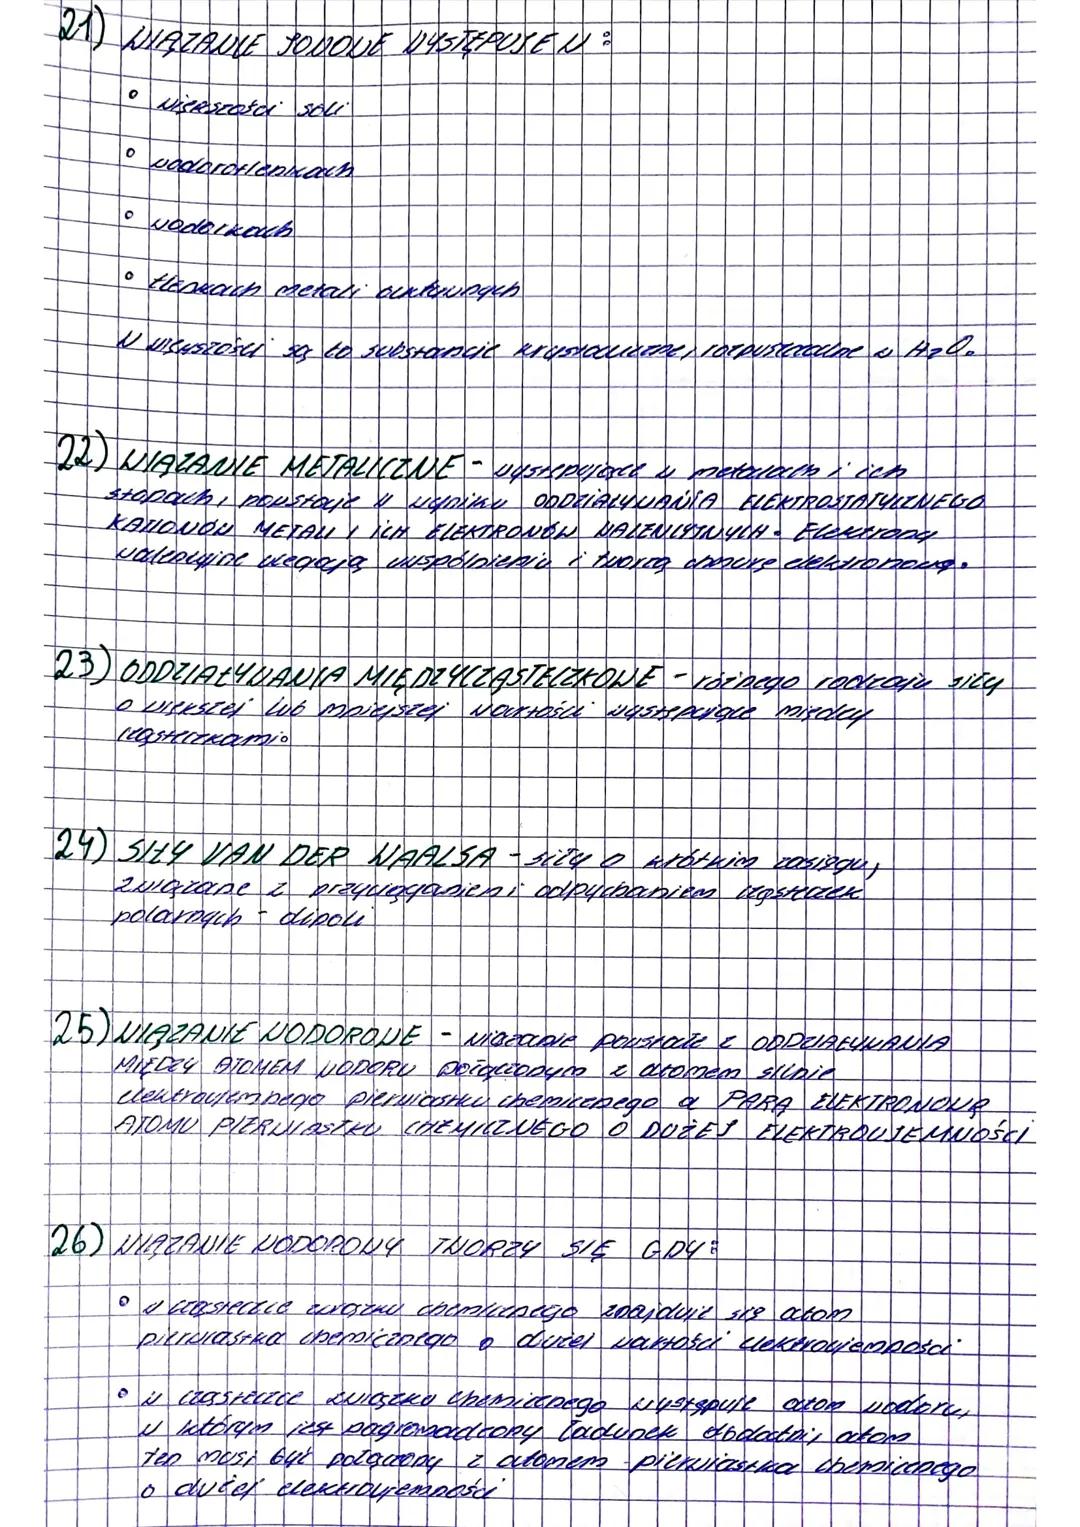 21) WIĄZANIE JONOWE WYSTĘPUJE W:
° większości soli
° wodorotlenkach
° wodorkach
° tlenkach metali aktywnych
W większości są to substancje krystaliczne, rozpuszczalne w H2O.
22) WIĄZANIE METALICZNE - występujące w metalach i ich
stopach, powstaje w wyniku ODDZIAŁYWANIA ELEKTROSTATYCZNEGO
KATIONÓW METALI I ICH ELEKTRONÓW WALENCYJNYCH. Elektrony
walencyjne ulegają uwspólnieniu i tworzą chmurę elektronową.
23) ODDZIAŁYWANIA MIĘDZYCZĄSTECZKOWE - różnego rodzaju siły
o większej lub mniejszej wartości występujące między
cząsteczkami.
24) SIŁY VAN DER WAALSA - siły o krótkim zasięgu,
związane z przyciąganiem i odpychaniem cząsteczek
polarnych - dipoli
25) WIĄZANIE WODOROWE - wiązanie powstałe z ODDZIAŁYWANIA
MIĘDZY ATOMEM WODORU połączonym z atomem silnie
elektroujemnego pierwiastku chemicznego a PARĄ ELEKTRONOWĄ
ATOMU PIERWIASTKU CHEMICZNEGO O DUŻEJ ELEKTROUJEMNOŚCI
26) WIĄZANIE WODOROWY TWORZY SIĘ GDY:
° w cząsteczce związku chemicznego znajduje się atom
pierwiastka chemicznego o dużej wartości elektroujemności
° w cząsteczce związku chemicznego występuje atom wodoru,
w którym jest nagromadzony ładunek dodatni, atom
ten musi być połączony z atomem pierwiastka chemicznego
o dużej elektroujemności